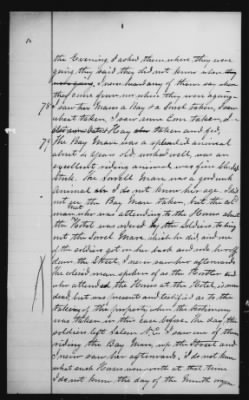 the Evening I asked them where they were
going, they said they did not know when
I never heard any of them say when
they came from, nor where they were going.
78 I saw two Mares a Bay & a Sorrel taken, I saw
wheat taken, I saw some Corn taken, I
Hay taken and fed,
79 The Bay Mare was a splendid animal
about 4 years old, worked well, was an
excellent riding animal, was fine
Stock. The Sorrell Mare was a good
animal I do not know her age. I did
not see the Bay Mare taken, but the
man who was attending to the Horses about
the Hotel was ordered by the Soldiers to
out the Sorrel Mare, which he did and one
of the soldiers got on her back and rode her off
down the Street, I never saw her afterwards.
The colored man spoken of as the Hostler and
who attended the Horses at the Hotel, is now
dead, but was present and testified as to the
taking of the property, when the testimony
was taken in this case before. The day the
soldiers left Salem N.C. I saw one of them
riding the Bay Mare, up the Street and
I never saw her afterwards. I do not know
what such Horses were worth at that time
I do not know the day of the month